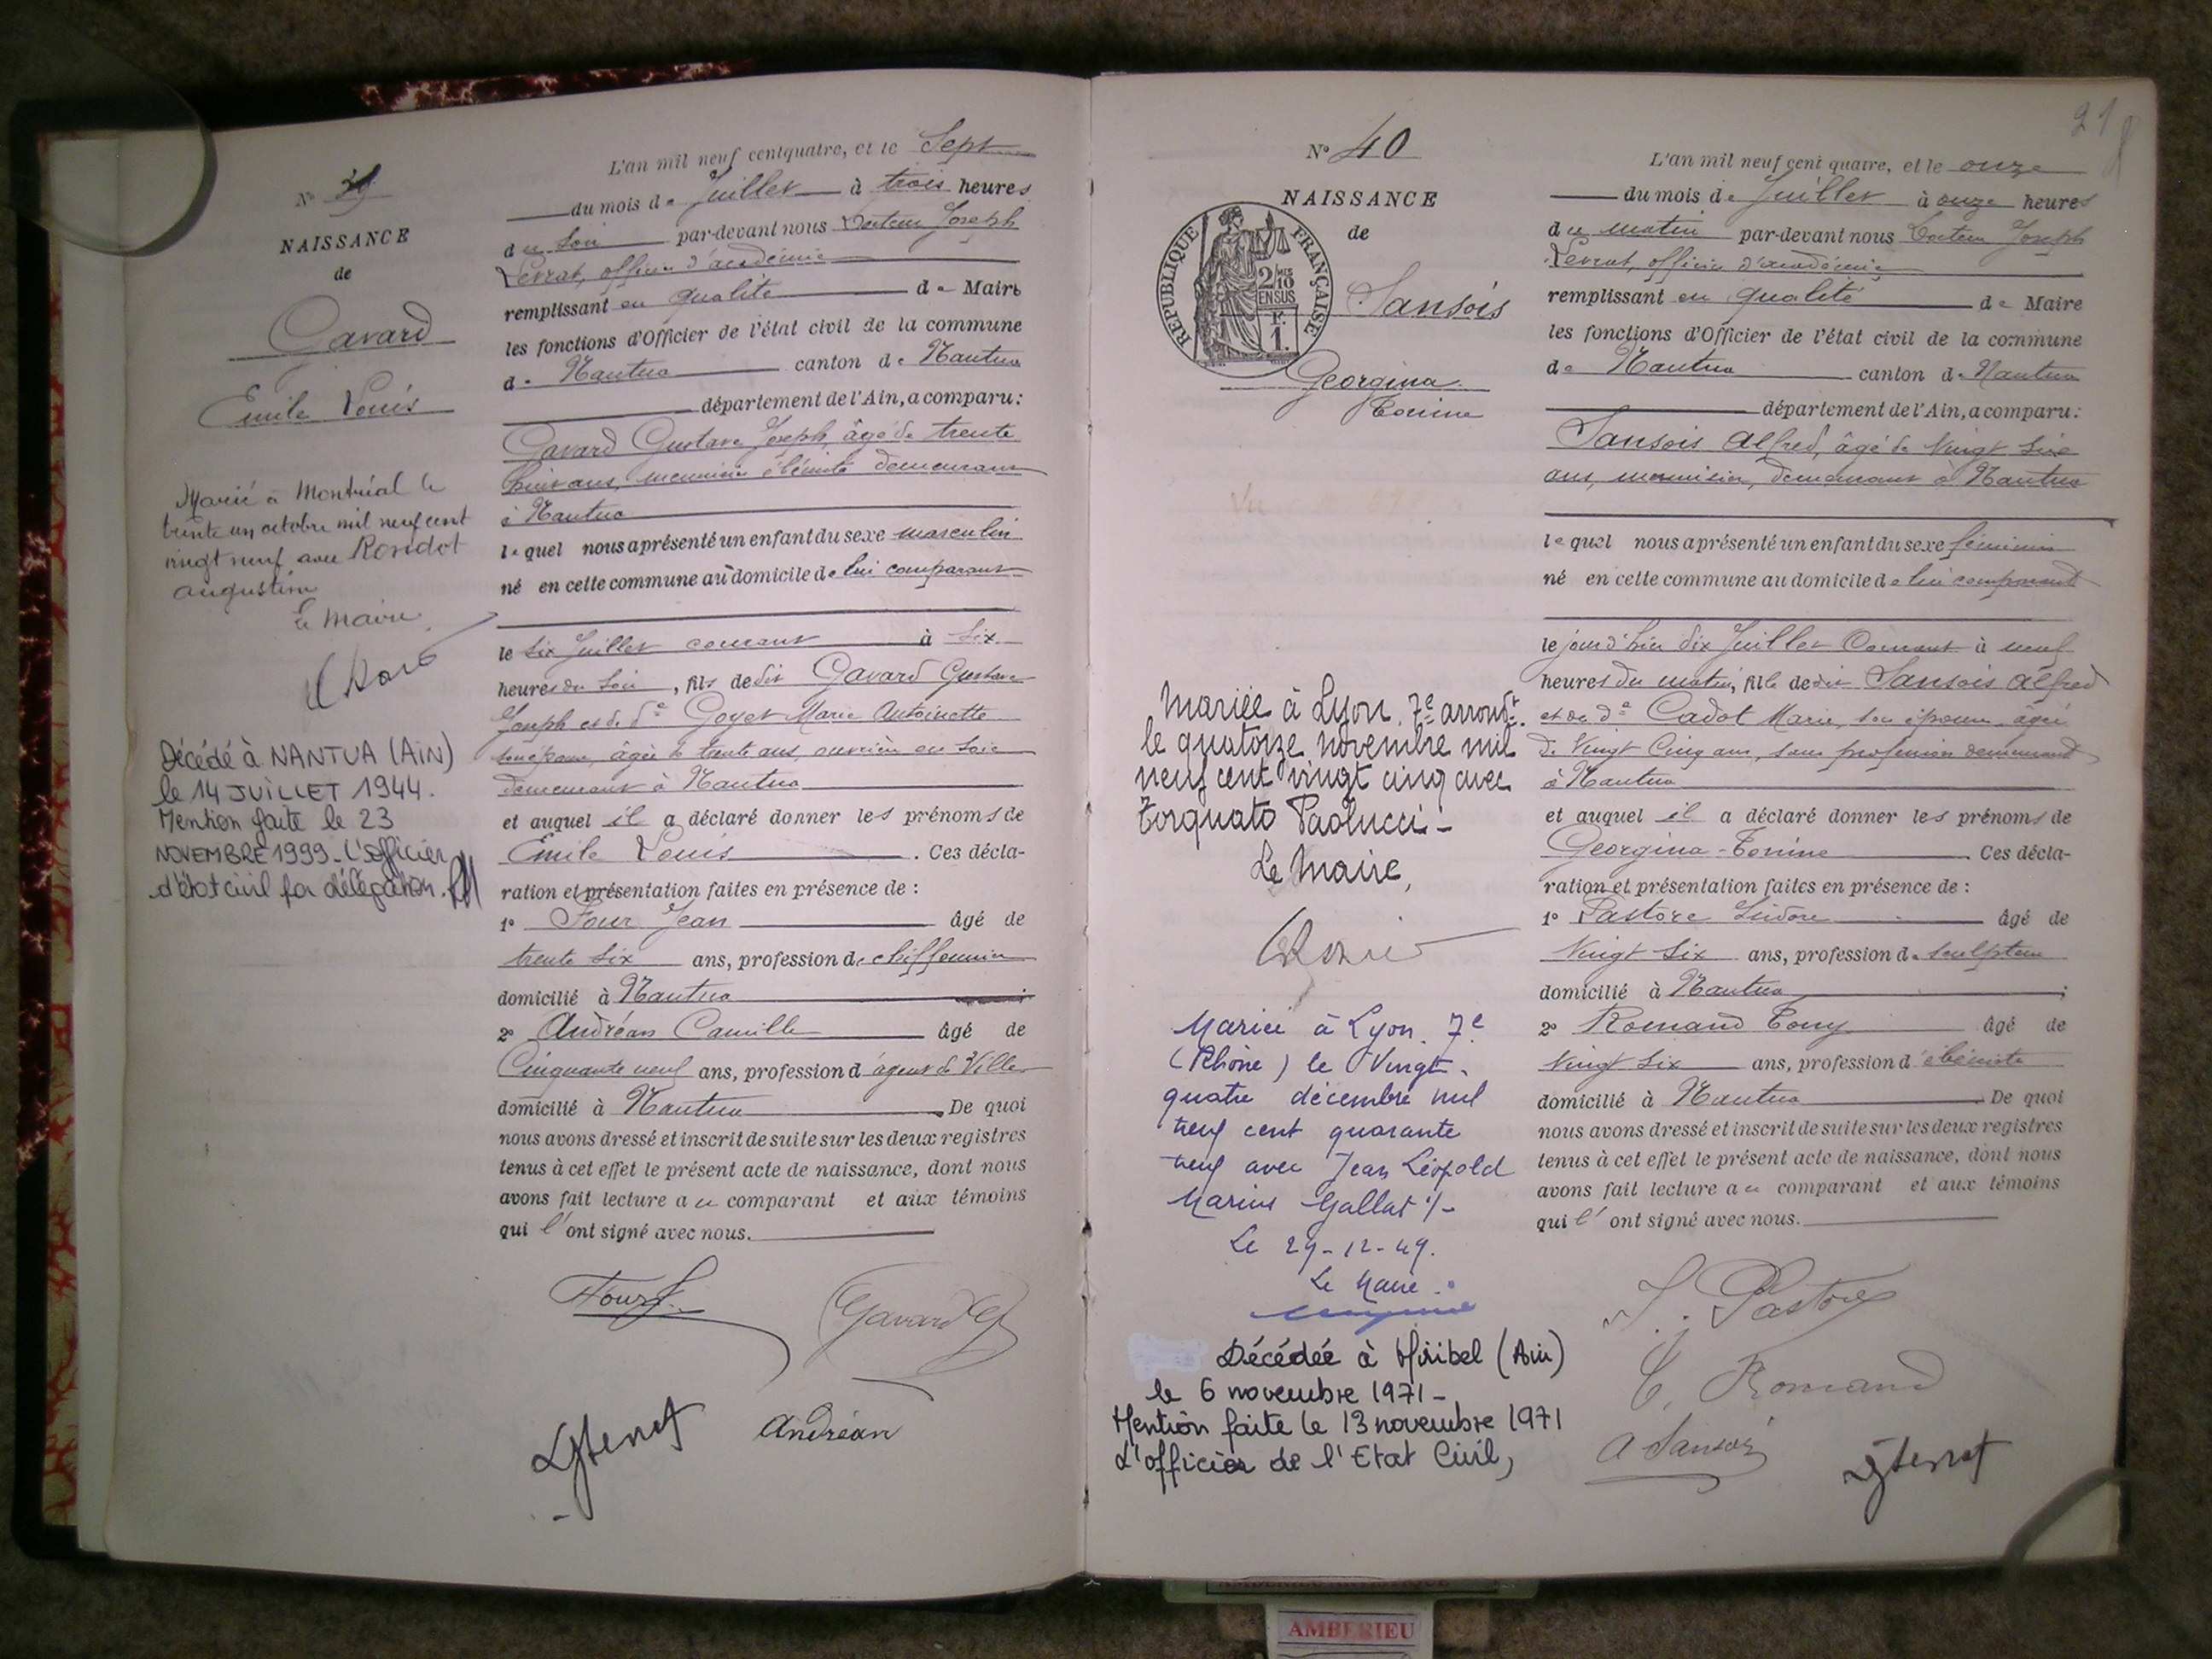 N° 39
NAISSANCE
de
Gavard
Emile Louis
Marié à Montréal le
trente un octobre mil neuf cent
vingt neuf avec Rondot
augustine
Le Maire,
Décédé à NANTUA (AIN)
le 14 JUILLET 1944.
Mention faite le 23
NOVEMBRE 1999 - L'officier
d'état civil par délégation.
L'an mil neuf cent quatre, et le Sept
du mois de Juillet à trois heures
du soir par-devant nous Docteur Joseph
Levrat, officier d'académie
remplissant en qualité de Maire
les fonctions d'Officier de l'état civil de la commune
de Nantua canton de Nantua
département de l'Ain, a comparu:
Gavard Gustave Joseph, âgé de trente
huit ans, menuisier ébéniste demeurant
à Nantua
lequel nous a présenté un enfant du sexe masculin
né en cette commune au domicile de lui comparant
le six Juillet courant à six
heures du soir, fils de dit Gavard Gustave
Joseph et de de Goyet Marie Antoinette
son épouse, âgée de trente ans, ouvrière en soie
demeurant à Nantua
et auquel il a déclaré donner les prénoms de
Emile Louis. Ces décla-
ration et présentation faites en présence de :
1° Four Jean âgé de
trente six ans, profession de chiffonnier
domicilié à Nantua
2° Andréan Camille âgé de
Cinquante neuf ans, profession d'agent de Ville
domicilié à Nantua. De quoi
nous avons dressé et inscrit de suite sur les deux registres
tenus à cet effet le présent acte de naissance, dont nous
avons fait lecture au comparant et aux témoins
qui l'ont signé avec nous.
Four J.
Gavard G
Andréan
21
N° 40
NAISSANCE
de
REPUBLIQUE FRANÇAISE
2/10 MES
EN SUS
1 F.
Sansois
Georgina
Tonine
Vu
Mariée à Lyon 7e arrondt.
le quatorze novembre mil
neuf cent vingt cinq avec
Torquato Paolucci -
Le Maire,
Mariée à Lyon. 7e
(Rhône) le Vingt-
quatre décembre mil
neuf cent quarante
neuf avec Jean Léopold
Marius Gallat ./-
Le 29-12-49.
Le Maire.
Décédée à Miribel (Ain)
le 6 novembre 1971 -
Mention faite le 13 novembre 1971
L'officier de l'Etat Civil,
L'an mil neuf cent quatre, et le onze
du mois de Juillet à onze heures
du matin par-devant nous Docteur Joseph
Levrat, officier d'académie
remplissant en qualité de Maire
les fonctions d'Officier de l'état civil de la commune
de Nantua canton de Nantua
département de l'Ain, a comparu:
Sansois Alfred, âgé de Vingt six
ans, menuisier, demeurant à Nantua
lequel nous a présenté un enfant du sexe féminin
né en cette commune au domicile de lui comparant
le jour d'hier dix Juillet Courant à neuf
heures du matin, fille de dit Sansois Alfred
et de de Cadot Marie, son épouse, âgée
de Vingt Cinq ans, sans profession demeurant
à Nantua
et auquel il a déclaré donner les prénoms de
Georgina-Tonine. Ces décla-
ration et présentation faites en présence de :
1° Pastore Isidore âgé de
Vingt-six ans, profession de sculpteur
domicilié à Nantua
2° Romand Tony âgé de
Vingt six ans, profession d'ébéniste
domicilié à Nantua. De quoi
nous avons dressé et inscrit de suite sur les deux registres
tenus à cet effet le présent acte de naissance, dont nous
avons fait lecture au comparant et aux témoins
qui l'ont signé avec nous.
J. Pastore
T. Romand
A Sansois
AMBERIEU